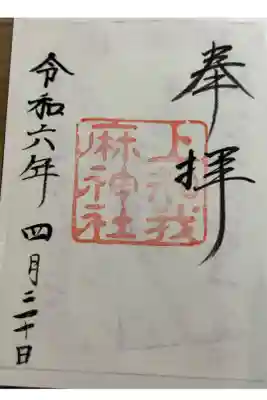 奉拝
上知我麻神社
令和六年 四月三十日